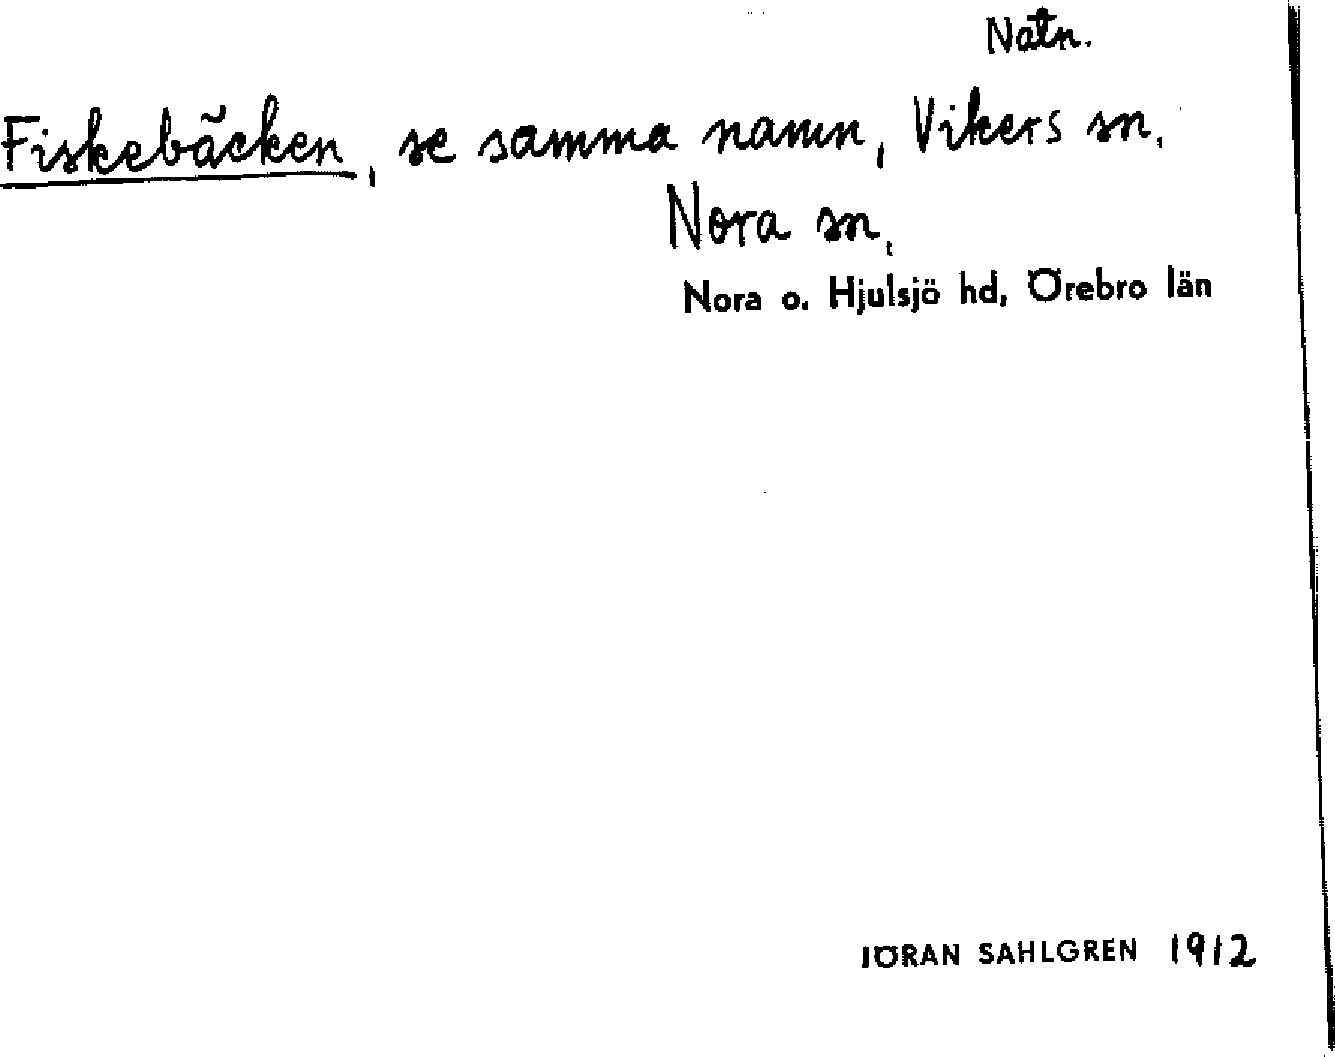 Natn.
Fiskebäcken, se samma namn, Vikers sn,
Nora sn,
Nora o. Hjulsjö hd, Örebro län
JÖRAN SAHLGREN 1912